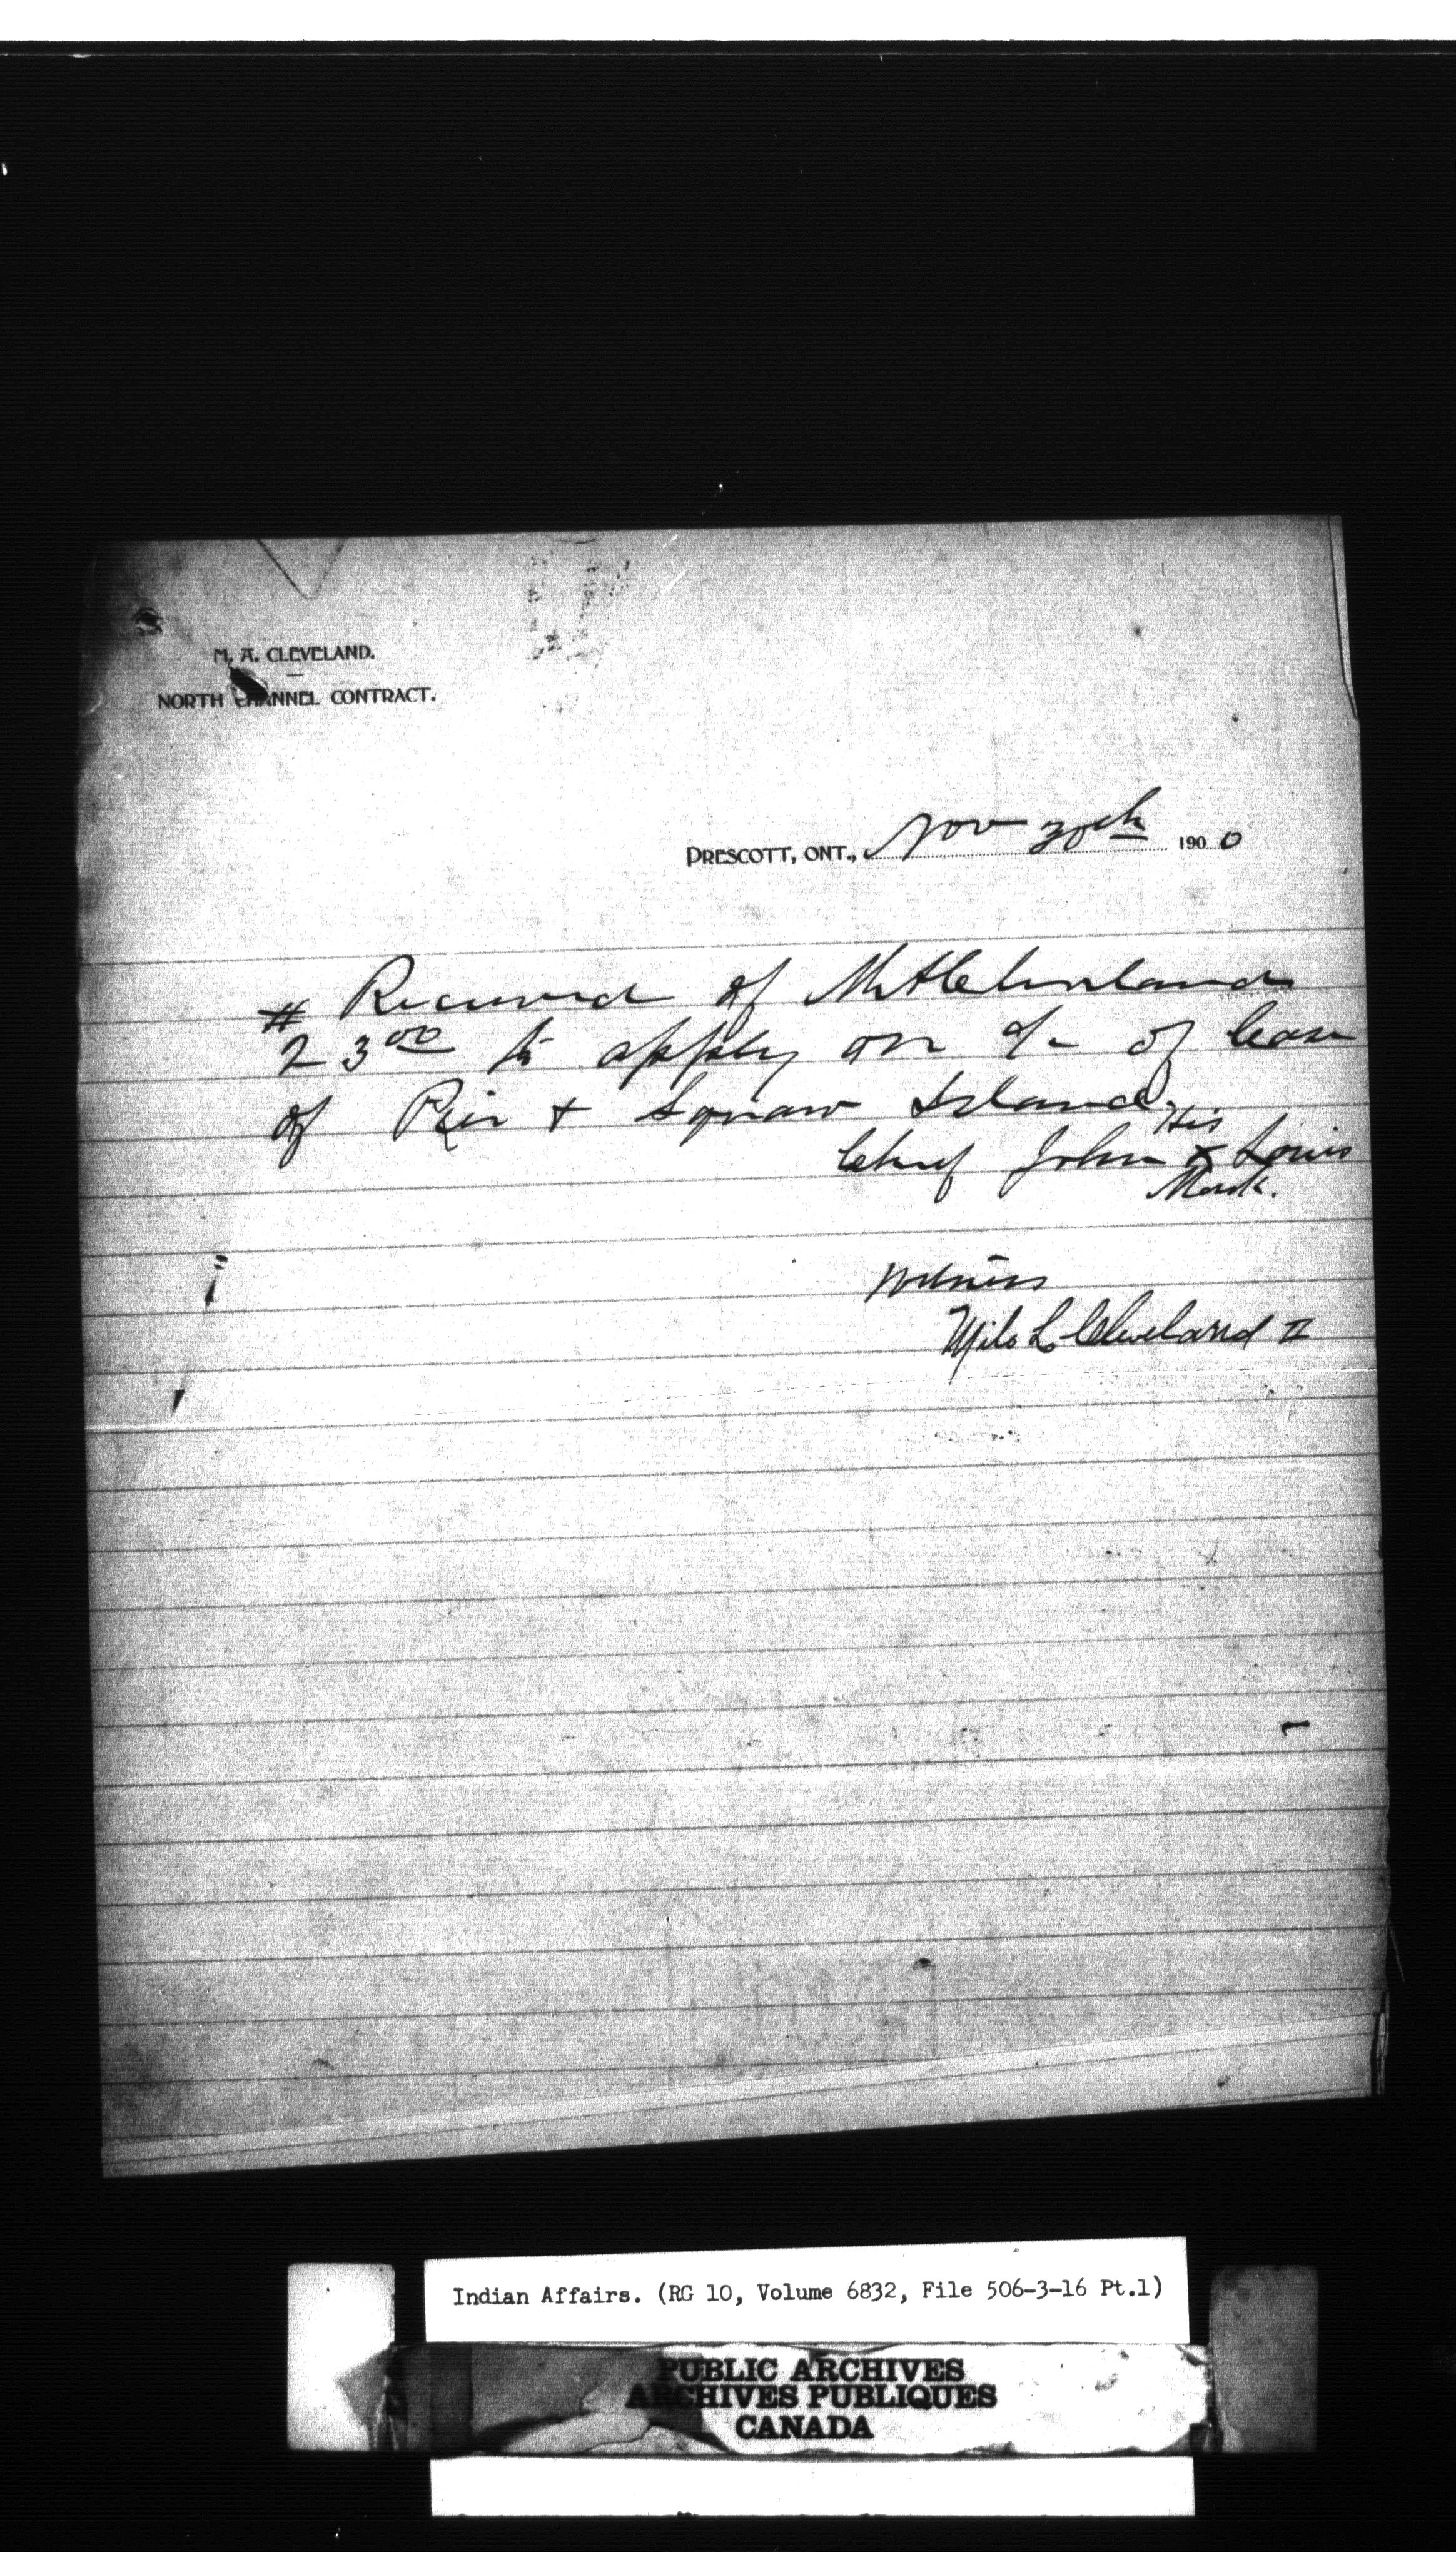 M. A. CLEVELAND.
NORTH CHANNEL CONTRACT.
PRESCOTT, ONT., Nov 30th 1900
Received of M A Cleveland
# 23 00 to apply on a/c of lease
of Pier + Squaw Island.
His
Chief John x Louis
Mark.
Witness
Milo L Cleveland II
Indian Affairs. (RG 10, Volume 6832, File 506-3-16 Pt.1)
PUBLIC ARCHIVES
ARCHIVES PUBLIQUES
CANADA